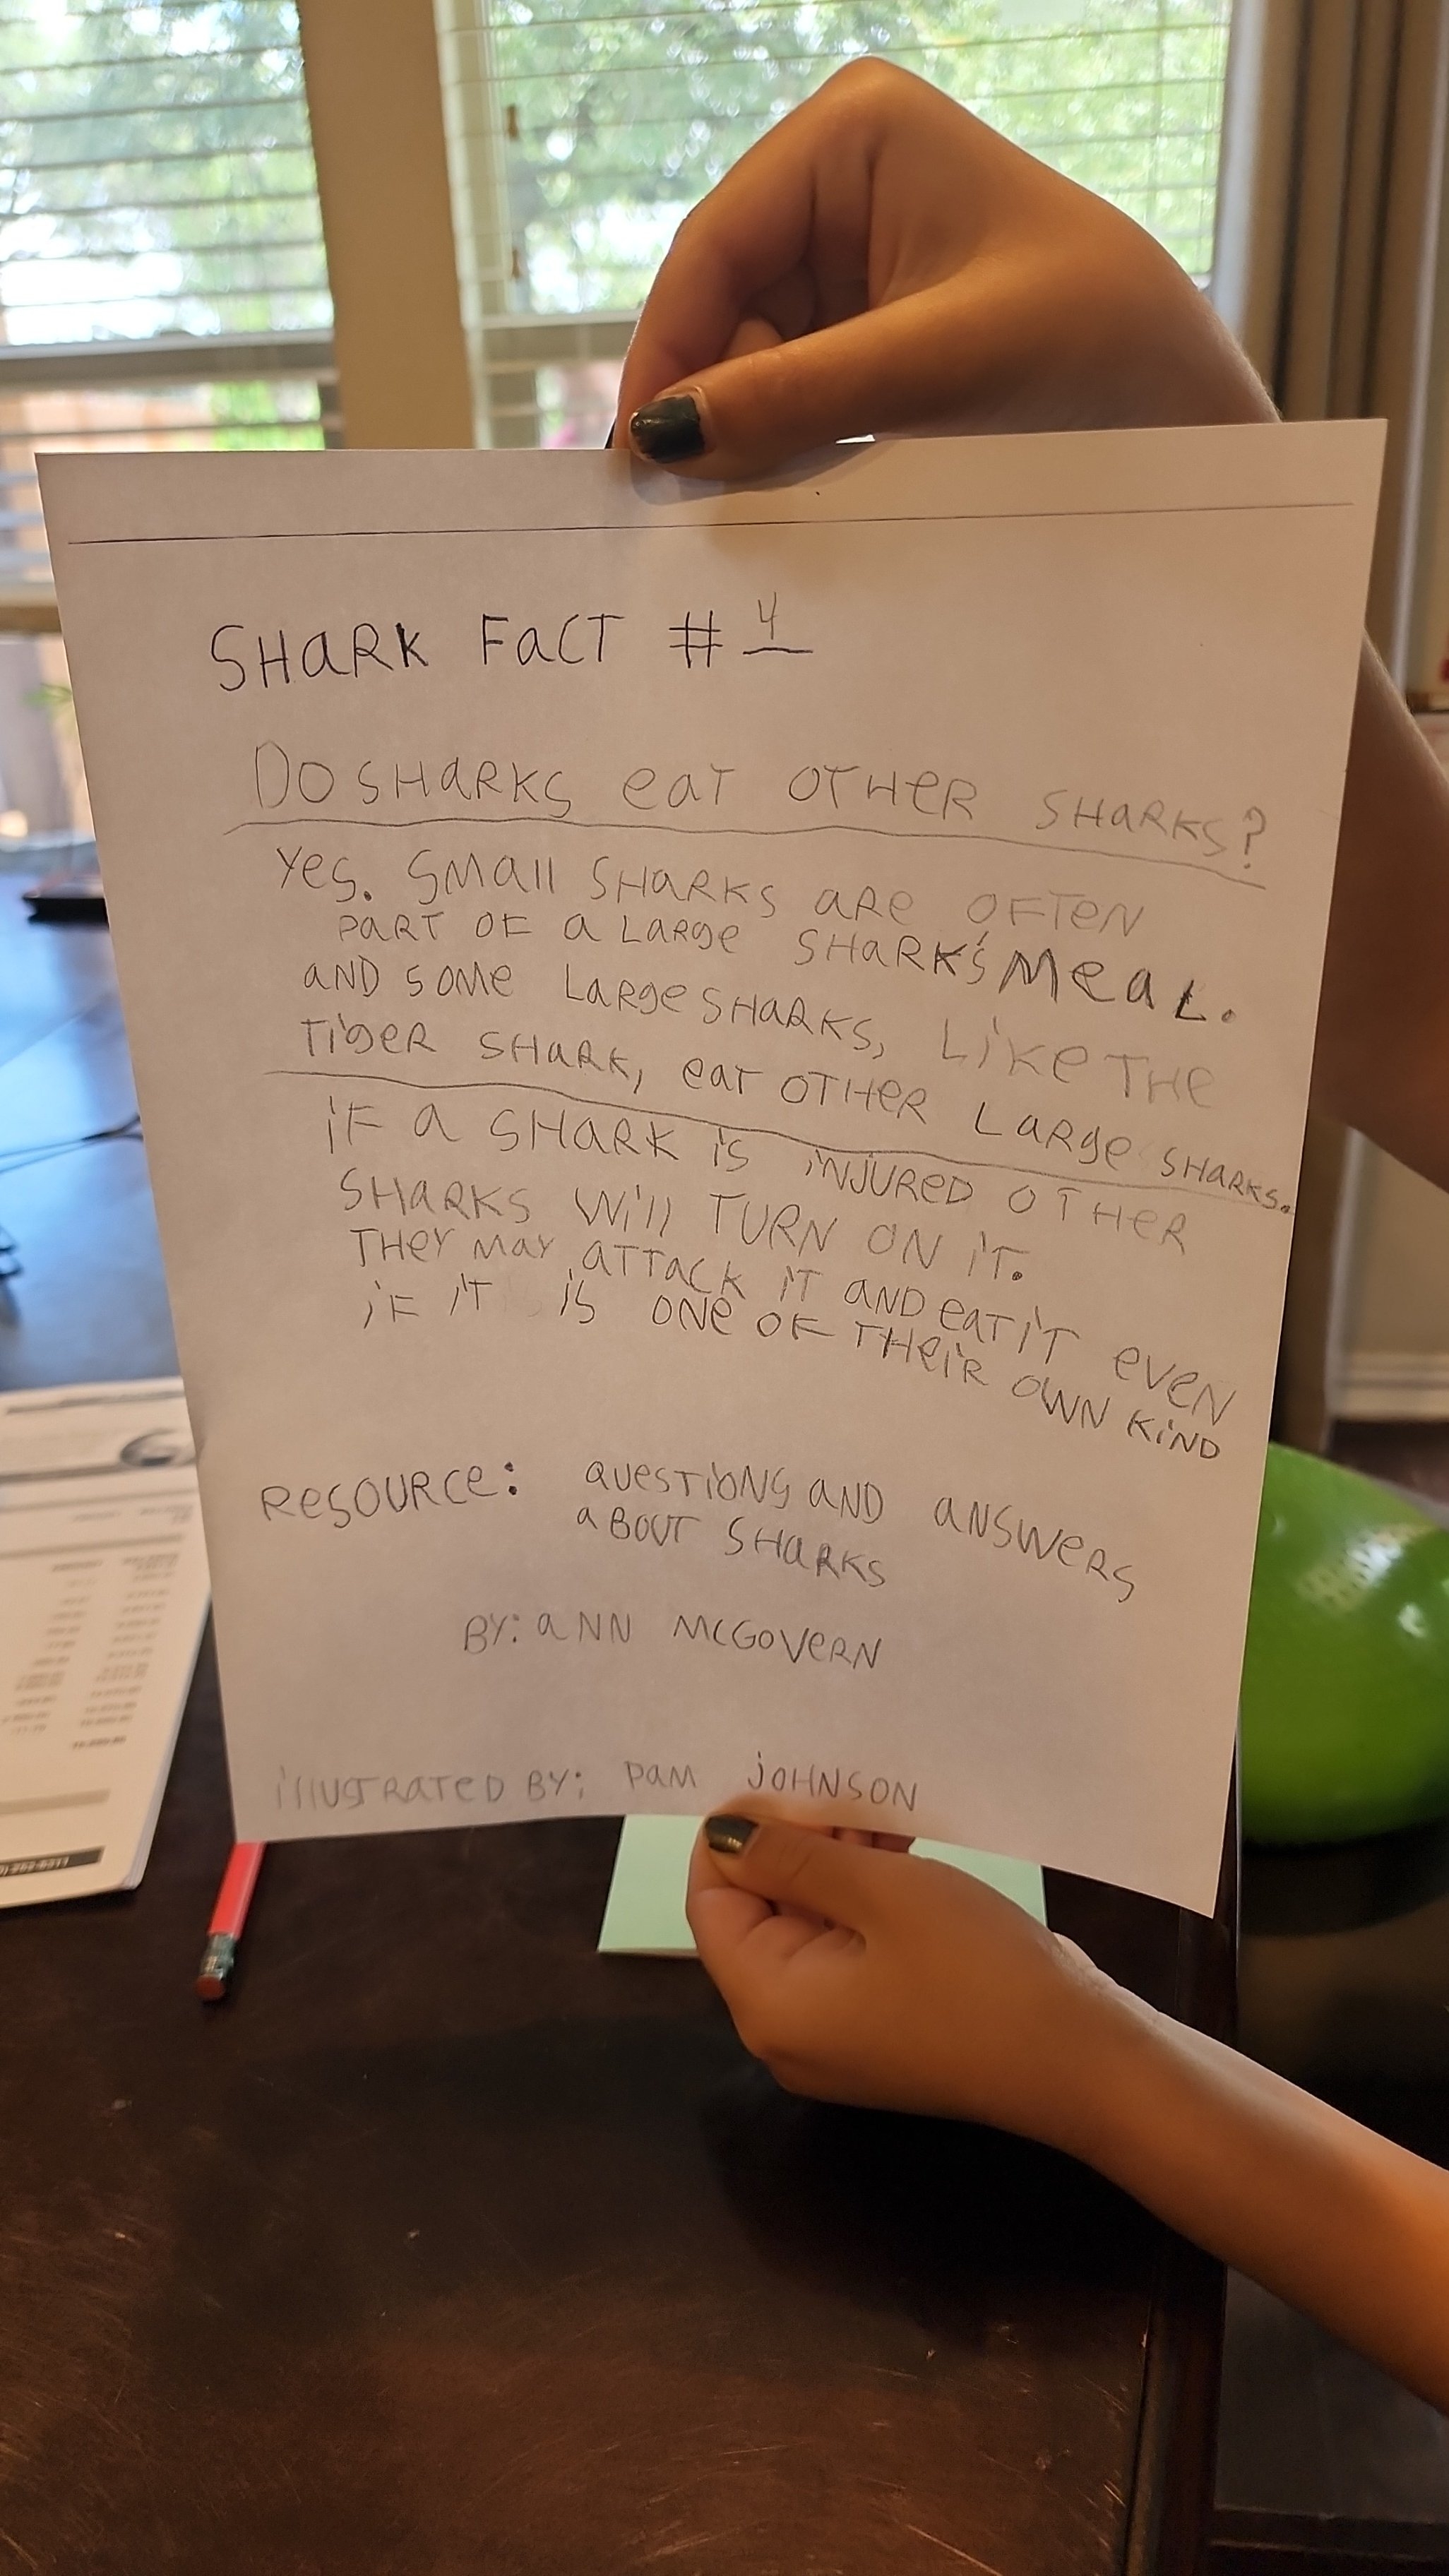 SHaRK FaCT # 4
DO SHaRKS eaT OTHeR SHaRKS?
Yes. SMall SHaRKS aRe OFTeN
PaRT OF a LaRge SHaRK'S Meal.
aND SOMe LaRge SHaRKS, LiKe THe
TigeR SHaRK, eaT OTHeR LaRge SHaRKS.
iF a SHaRK iS iNJURed OTHeR
SHaRKS Will TURN ON iT.
THeY MaY aTTaCK iT aND eaT iT eVeN
iF iT iS ONe OF THeiR OWN KiND
ReSOURCe: QUeSTiONS aND aNSWeRS
aBOUT SHaRKS
BY: aNN MCGOVeRN
illUSTRaTeD BY: PaM JOHNSON